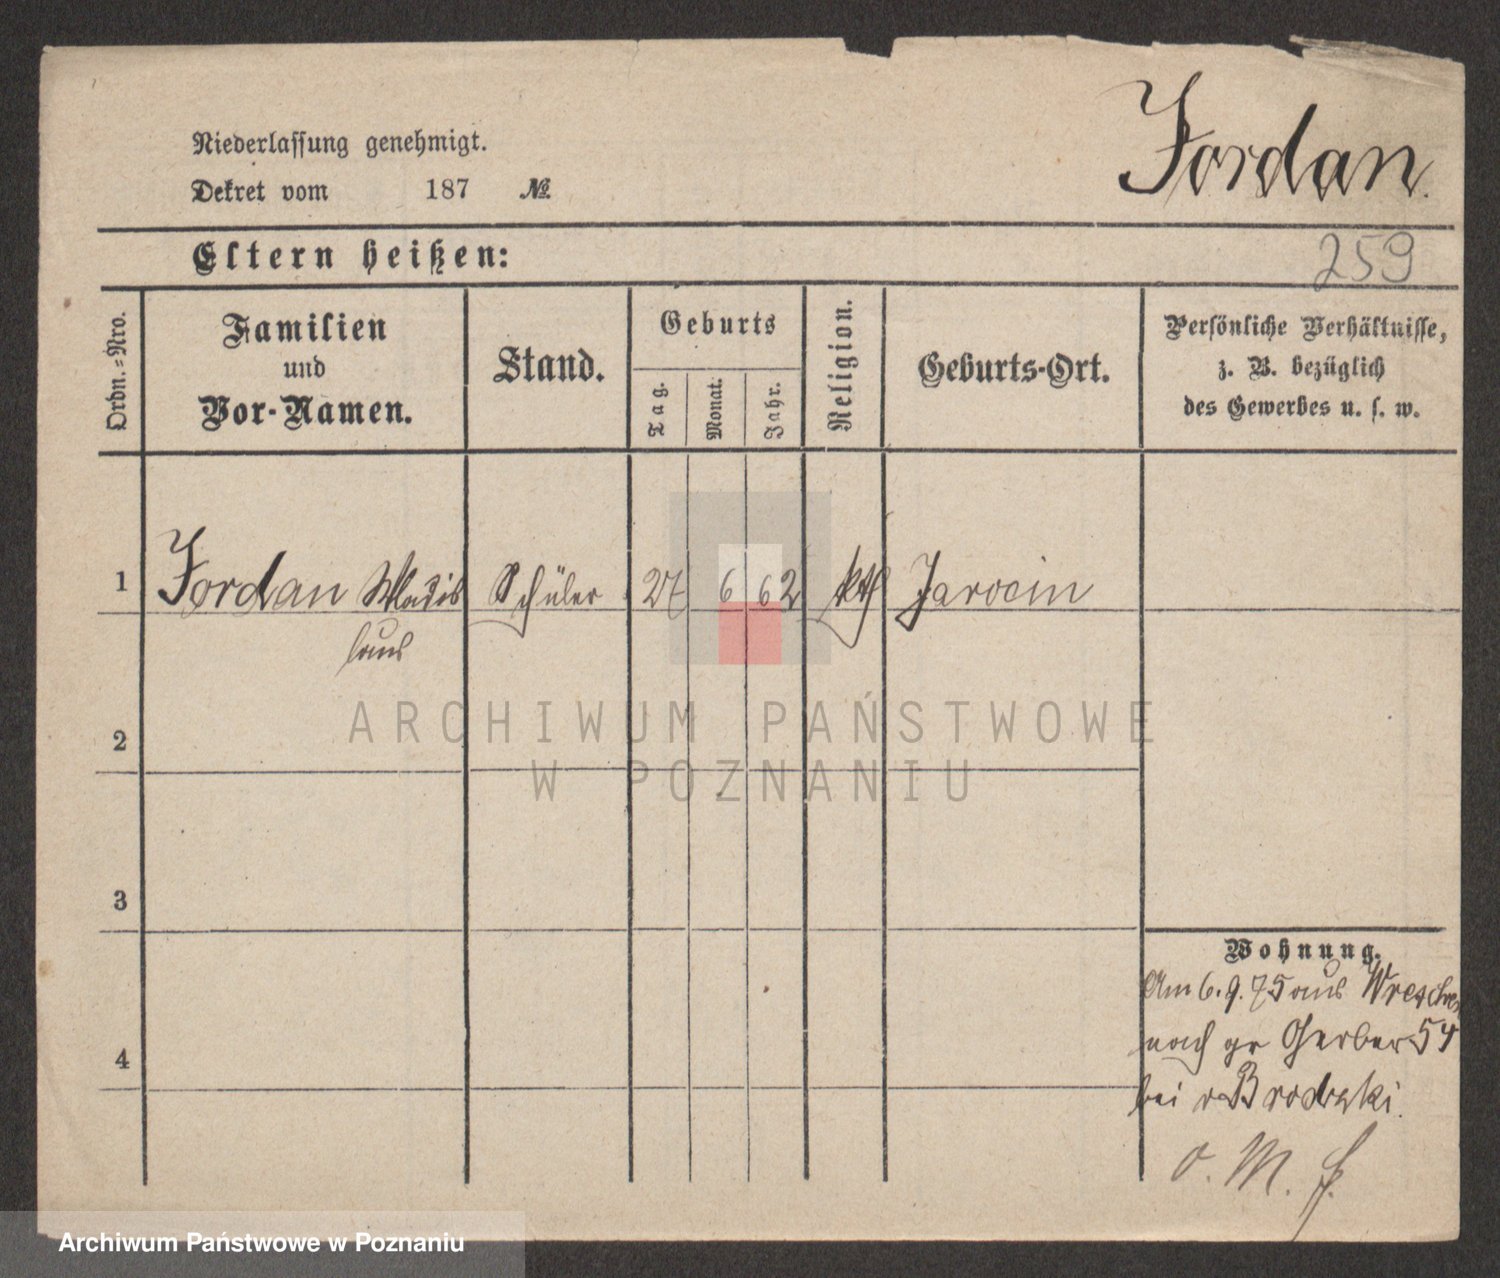 Jordan.
Niederlassung genehmigt.
Dekret vom 187 №
Eltern heißen:
259
Ordn.-Nro.
Familien und Vor-Namen.
Stand.
Geburts
Tag.
Monat.
Jahr.
Religion.
Geburts-Ort.
Persönliche Verhältnisse,
z. B. bezüglich
des Gewerbes u. s. w.
1 Jordan Wladis Schüler 27 6 62 kth Jarocin
laus
ARCHIWUM PAŃSTWOWE
W POZNANIU
2
3
4
Wohnung.
Am 6. 9. 75 aus Wreschen
nach gr Gerber 54
bei v
o. M.
Archiwum Państwowe w Poznaniu